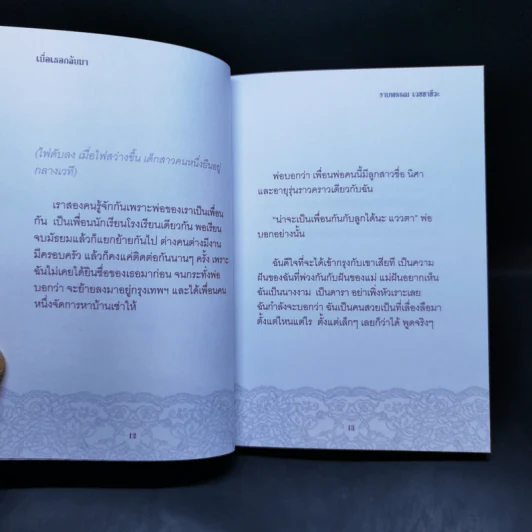 เมื่อเธอกลับมา
(ไฟดับลง เมื่อไฟสว่างขึ้น เด็กสาวคนหนึ่งยืนอยู่
กลางเวที)
เราสองคนรู้จักกันเพราะพ่อของเราเป็นเพื่อน
กัน เป็นเพื่อนนักเรียนโรงเรียนเดียวกัน พอเรียน
จบมัธยมแล้วก็แยกย้ายกันไป ต่างคนต่างมีงาน
มีครอบครัว แล้วก็คงแค่ติดต่อกันนานๆ ครั้ง เพราะ
ฉันไม่เคยได้ยินชื่อของเธอมาก่อน จนกระทั่งพ่อ
บอกว่า จะย้ายลงมาอยู่กรุงเทพฯ และได้เพื่อนคน
หนึ่งจัดการหาบ้านเช่าให้
12
งามพรรณ เวชชาชีวะ
พ่อบอกว่า เพื่อนพ่อคนนี้มีลูกสาวชื่อ นิศา
และอายุรุ่นราวคราวเดียวกับฉัน
"น่าจะเป็นเพื่อนกันกับลูกได้นะ แววตา" พ่อ
บอกอย่างนั้น
ฉันดีใจที่จะได้เข้ากรุงกับเขาเสียที เป็นความ
ฝันของฉันที่พ่วงกันกับฝันของแม่ แม่ฝันอยากเห็น
ฉันเป็นนางงาม เป็นดารา อย่าเพิ่งหัวเราะเลย
ฉันกำลังจะบอกว่า ฉันเป็นคนสวยเป็นที่เลื่องลือมา
ตั้งแต่ไหนแต่ไร ตั้งแต่เล็กๆ เลยก็ว่าได้ พูดจริงๆ
13